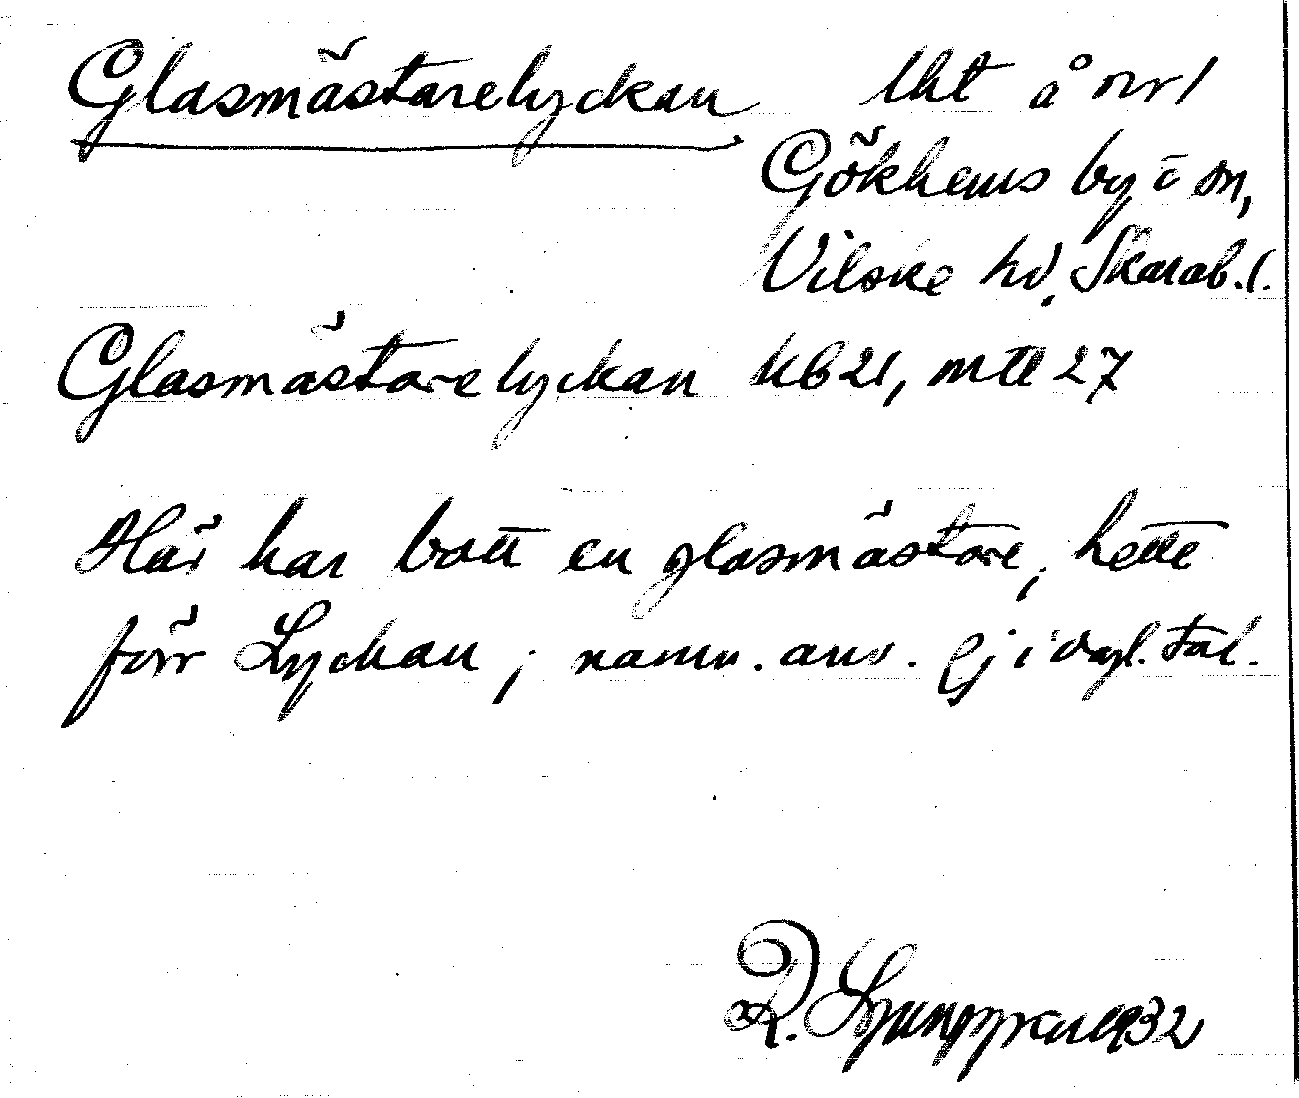 Glasmästarelyckan lht å nr 1
Gökhems by i sn,
Vilske hd, Skarab. l.
Glasmästarelyckan kb 21, mtl 27
Här har bott en glasmästare, hette
förr Lyckan; namn. anv. Ej i dagl. tal.
R. Ljunggren 1932